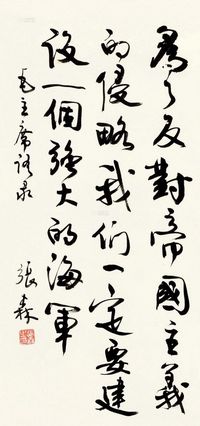 為了反對帝國主義
的侵略我們一定要建
設一個強大的海軍
毛主席語录
張森